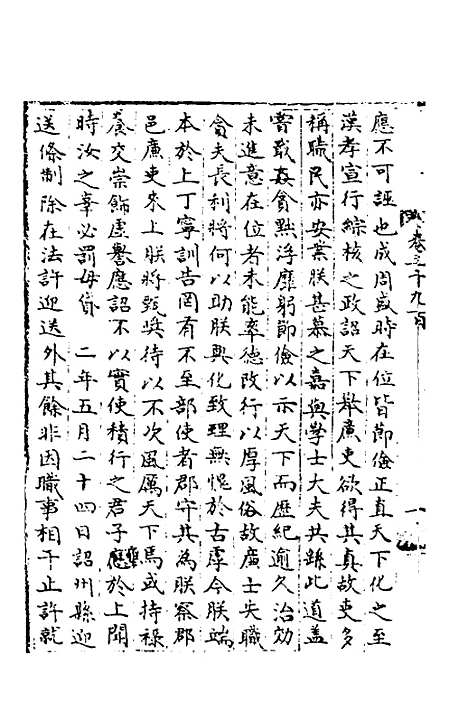 應不可誣也成周盛時在位皆節儉正直天下化之至
漢孝宣行綜核之政詔天下舉廉吏欲得其真故吏多
稱職民亦安業朕甚慕之嘉與學士大夫共繇此道蓋
嘗戢姦貪黜浮靡躬節儉以示天下而歷紀逾久治効
未進意在位者未能率德改行以厚風俗故廉士失職
貪夫長利將何以助朕興化致理無愧於古虖今朕端
本於上丁寧訓告罔有不至部使者郡守其為朕察郡
邑廉吏來上朕將甄奬待以不次風厲天下焉或持祿
養交崇飾虛譽應詔不以實使積行之君子壅於上聞
時汝之辜必罰毋貸 二年五月二十四日詔州縣迎
送條制除在法許迎送外其餘非因職事相干止許就